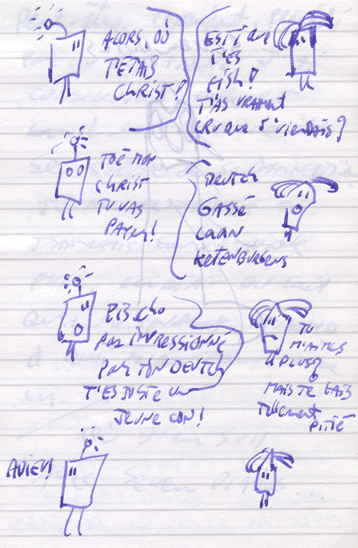 ALORS, OÙ
T'ÉTAIS
CHRIST!
EST-CE QUE
T'ES
FISH!
T'AS VRAIMENT
CRU QUE J'VIENDRAIS?
TOÉ MON
CHRIST
TU VAS
PAYER!
DEUTCH
GASSÉ
LAAN
KETENBURGENS
PIS CHU
PAS IMPRESSIONNÉ
PAR TON DEUTCH
T'ES JUSTE UN
JEUNE CON!
TU
M'AIMES
PLUS?
MAIS TÉ GAIS
TELLEMENT
PITIÉ
ADIEU!